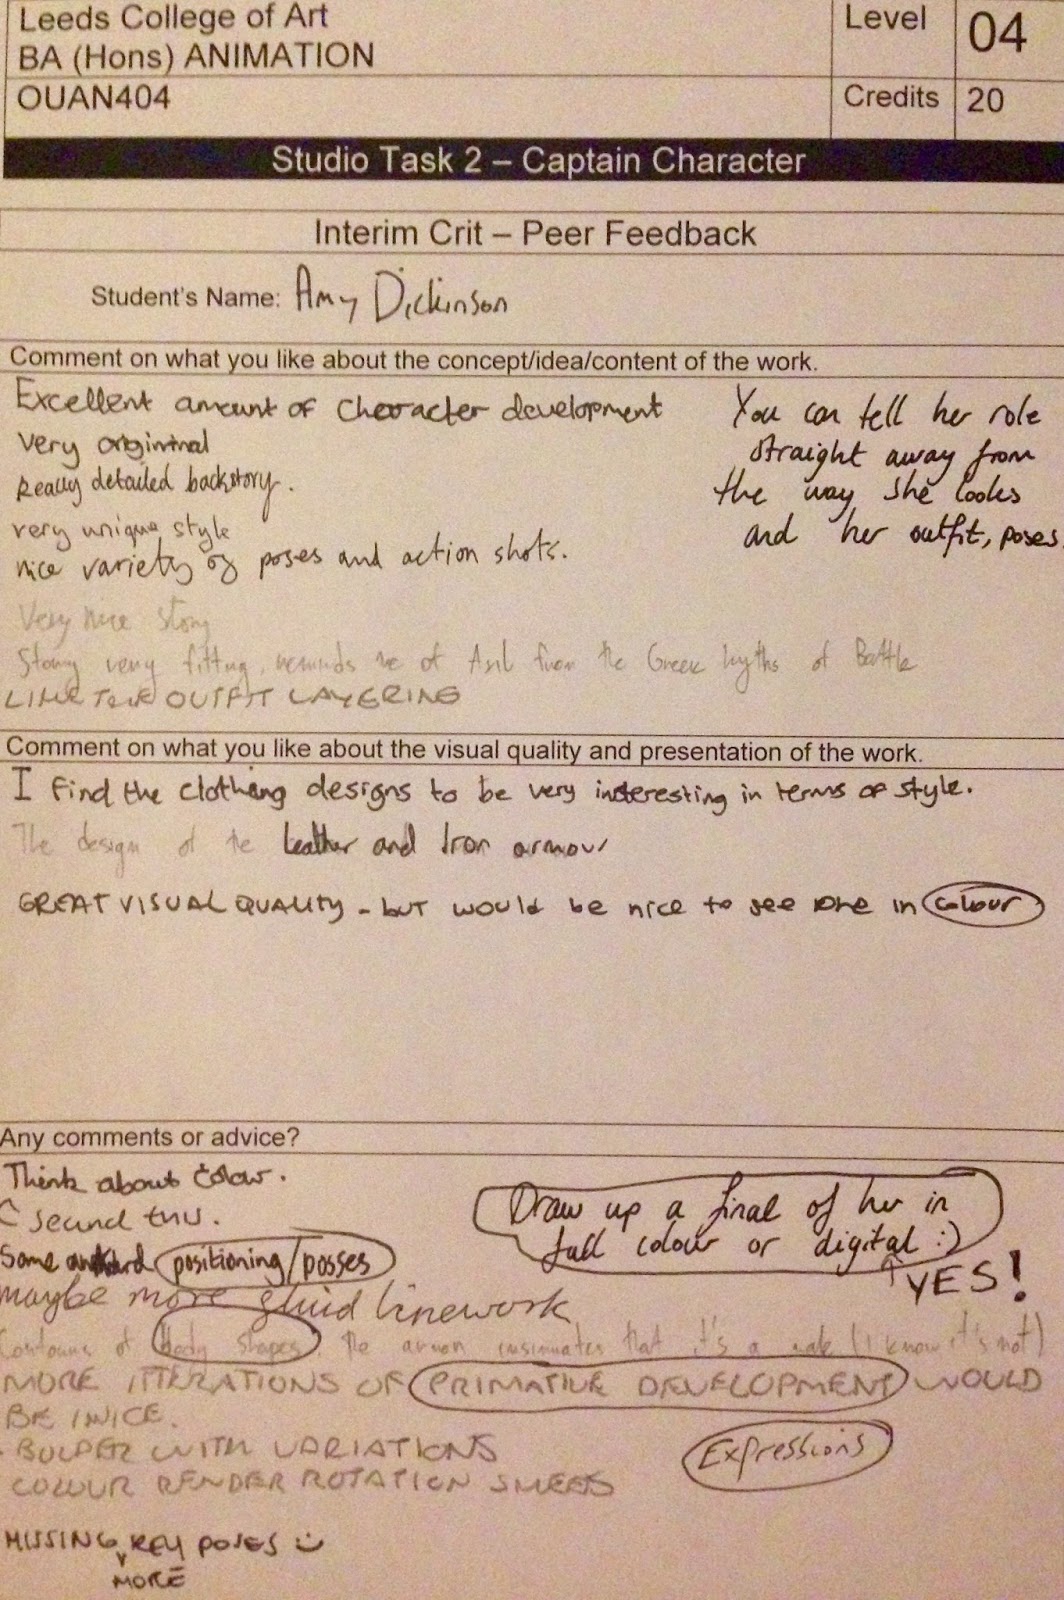 Leeds College of Art
BA (Hons) ANIMATION
OUAN404
Level 04
Credits 20
Studio Task 2 – Captain Character
Interim Crit – Peer Feedback
Student's Name: Amy Dickinson
Comment on what you like about the concept/idea/content of the work.
Excellent amount of Character development
very originnal
Really detailed backstory.
very unique style
nice variety of poses and action shots.
You can tell her role
straight away from
the way she looks
and her outfit, poses
Very nice story
Story very fitting, reminds me of from the Greek Myths of Battle
LIKE THE OUTFIT LAYERING
Comment on what you like about the visual quality and presentation of the work.
I find the clothing designs to be very interesting in terms of style.
The design of the leather and Iron armour
GREAT VISUAL QUALITY - BUT WOULD be nice to see one in colour
Any comments or advice?
Think about Colour.
I second this.
Some awkward positioning/posses
maybe more fluid linework
Draw up a final of her in
full colour or digital :)
YES!
Contours of body shapes. The armour insinuates that it's a male (I know it's not)
MORE ITTERATIONS OF PRIMATIVE DEVELOPMENT WOULD
BE NICE.
- BOLDER WITH VARIATIONS
COLOUR RENDER ROTATION SHEETS
Expressions
MISSING KEY POSES
MORE